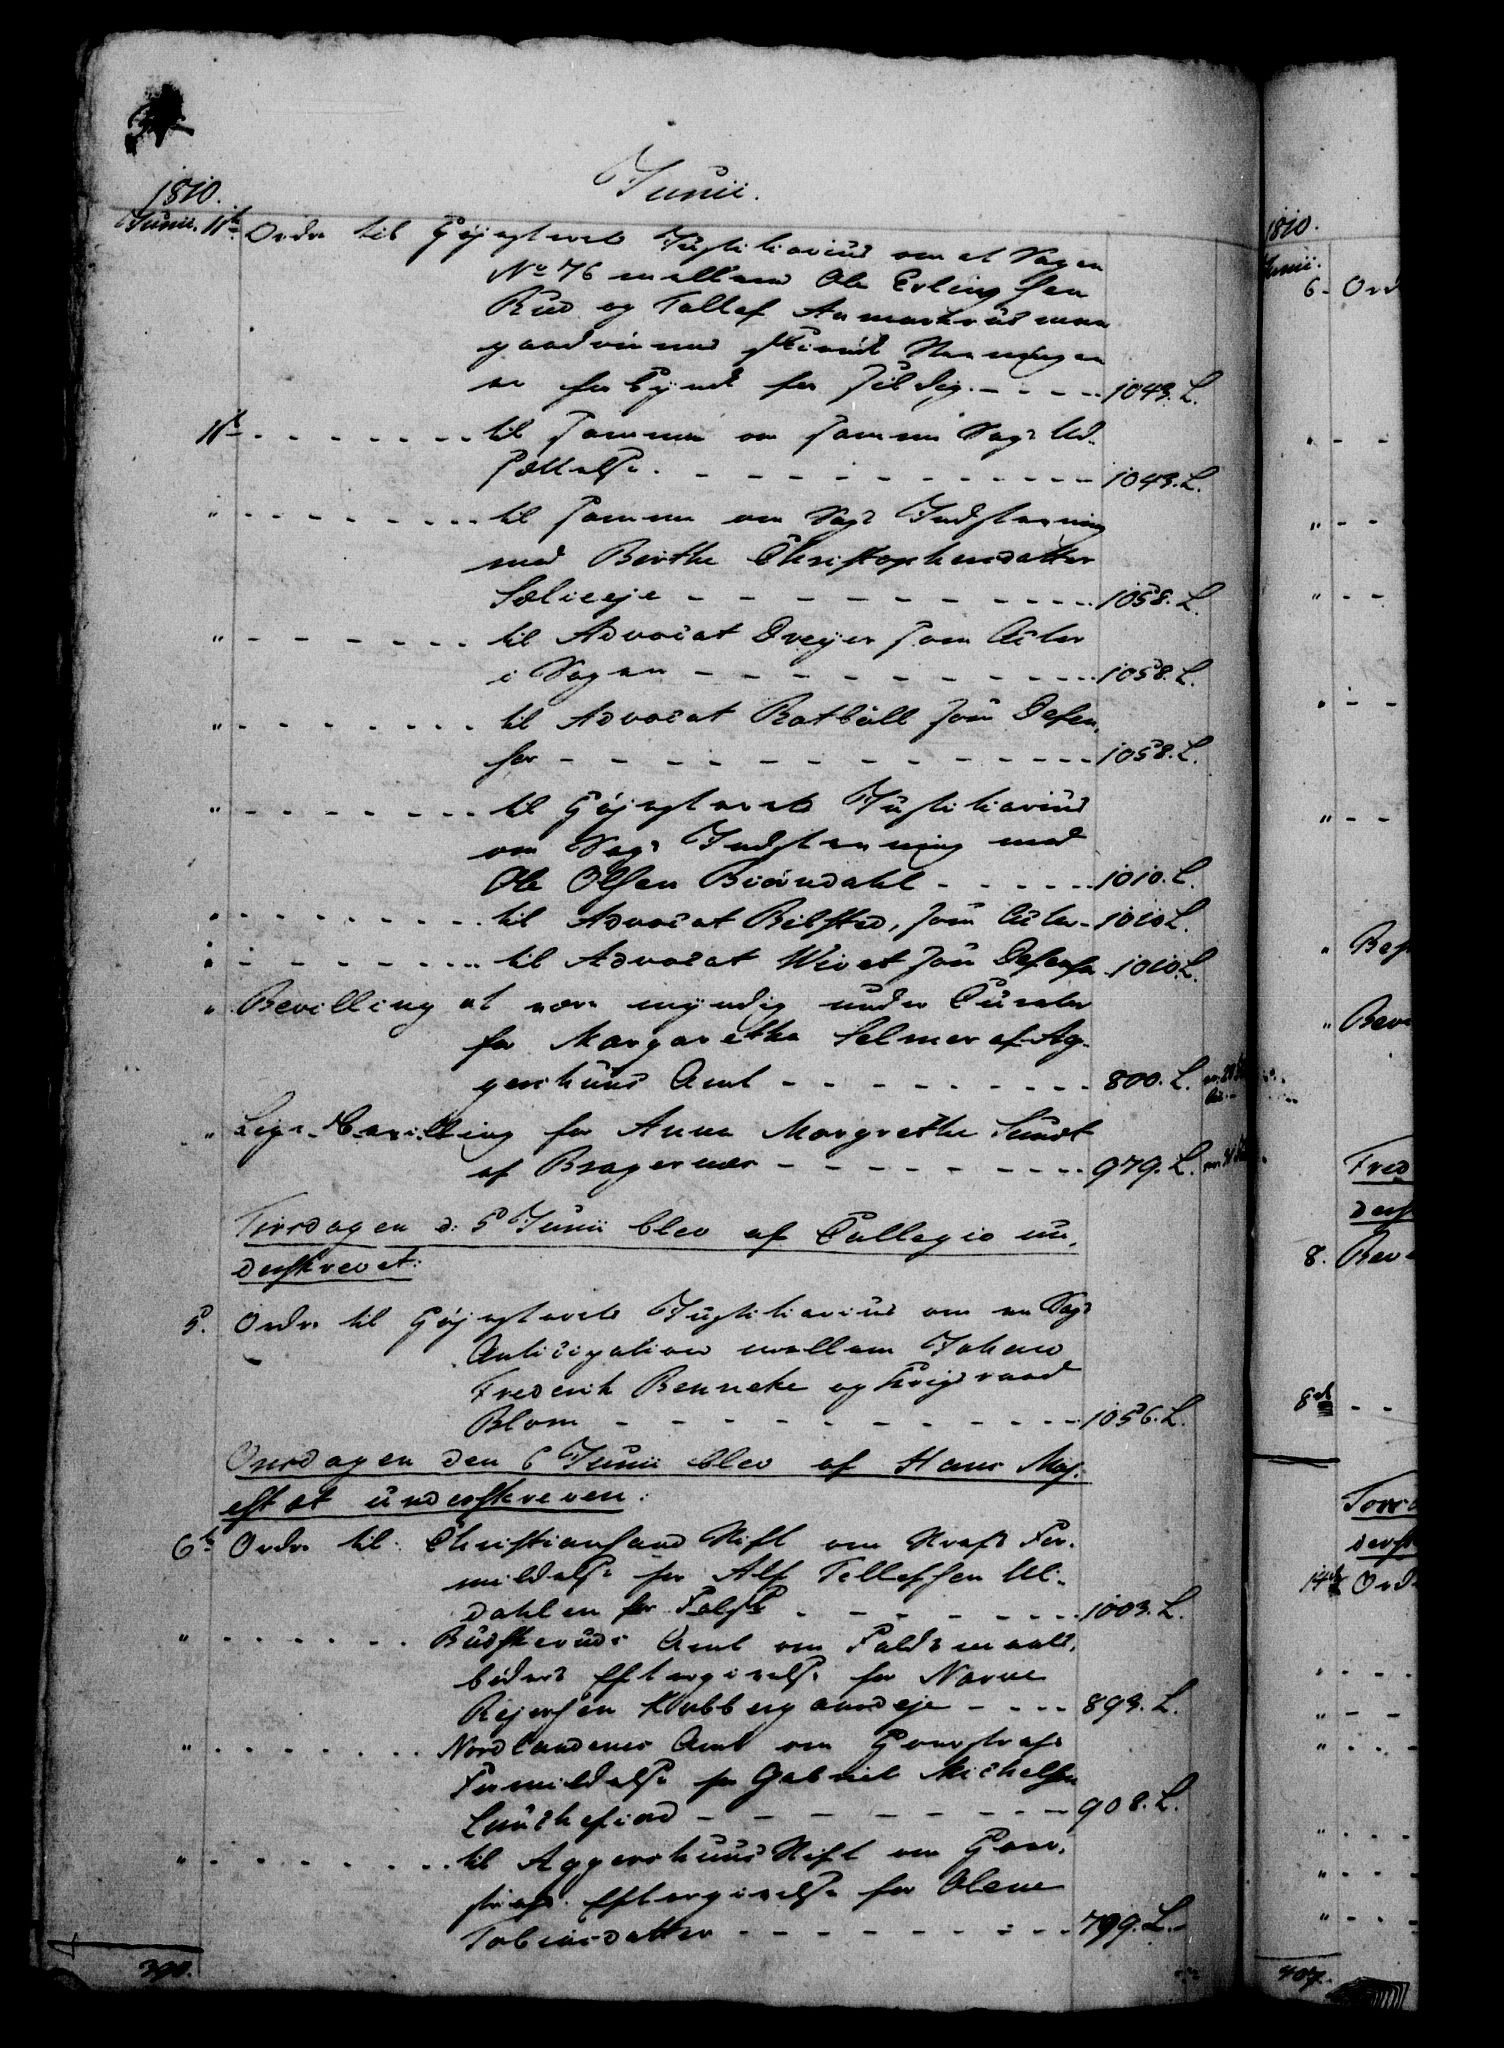 Junii.
1810.
Junii. 1ste Ordre til Højesterets Justitiarius om at Sagen
No 76 mellem Ole Erlingsen
Rud og Tollef Aamarkrud maa
paadømmes skiønt Stævningen
er forkyndt for sildig. - - - - - 1043. L.
1ste - - - - - - - til samme om samme Sags Ud-
sættelse. - - - - - - - - - - 1043. L.
" - - - - - - - til samme om Sags Indstævning
mod Birthe Christophersdatter
Solieeje - - - - - - - - - - 1058. L.
" - - - - - - til Advocat Dreyer som Actor
i Sagen - - - - - - - - - - 1058. L.
" - - - - - - - til Advocat Rotbøll som Defen-
sor - - - - - - - - - - - - 1058. L.
" - - - - - - - til Højesterets Justitiarius
om Sags Indstævning mod
Ole Olsen Biørndahl - - - - - 1010. L.
" - - - - - - - - til Advocat Bilsted, som Actor - 1010 L.
" - - - - - - - til Advocat Wivet som Defensor - 1010. L.
" Bevilling at være myndig under Curator
for Margaretha Selmer af Ag-
gershuus Amt - - - - - - - - 800. L.
" Lige Bevilling for Anna Margrethe Sundt
af Bragernæs - - - - - - - - 979. L.
Tirsdagen d: 5 Junii blev af Collegio un-
derskrevet:
5. Ordre til Højesterets Justitiarius om en Sags
Anticipation mellem Johan
Frederik Benneke og Krigsraad
Blom - - - - - - - - - - - 1056. L.
Onsdagen den 6 Junii blev af Hans Maj-
estæt underskreven:
6te Ordre til Christiansand Stift om Straf For-
mildelse for Alf Tellefsen Ul-
dahlen for Falsk - - - - - - - 1003. L.
" - - - - - - Budskeruds Amt om Faldsmaals
bøders Eftergivelse for Narve
Rejersen Kobbergaardeje - - - - 893. L.
" - - - - - - - Nordlandenes Amt om Straf
Formildelse for Gabriel Michelsen
- - - - - - - - - 908. L.
" - - - - - - - - til Aggershuus Stift om
Straf Eftergivelse for Olene
Tobiasdatter - - - - - - - - - 799. L.
390.
1810.
Junii.
6 - Ord
8. Bev
8de - -
14de Ord
407.